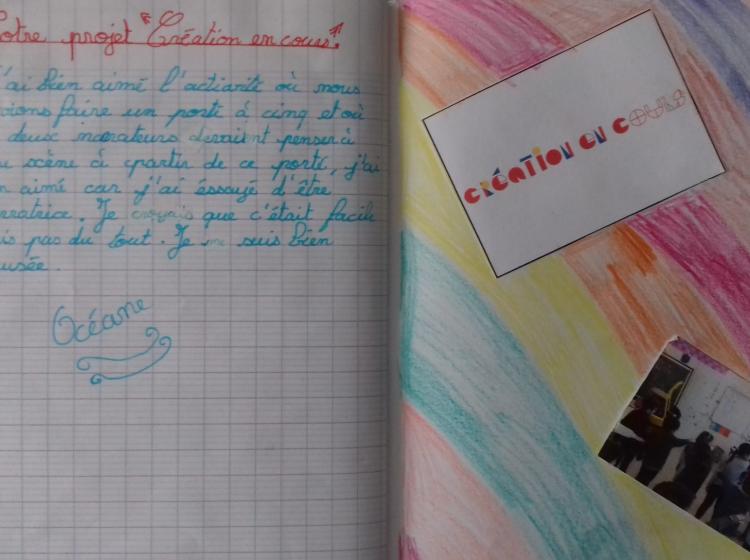 otre projet "Création en cours"
'ai bien aimé l'activité où nous
vions faire un porté à cinq et où
deux narrateurs devaient penser à
u scène à partir de ce porté, j'ai
n aimé car j'ai éssayé d'être
rratrice. Je croyais que c'était facile
is pas du tout. Je me suis bien
usée.
Océane
CRÉATION EN COURS